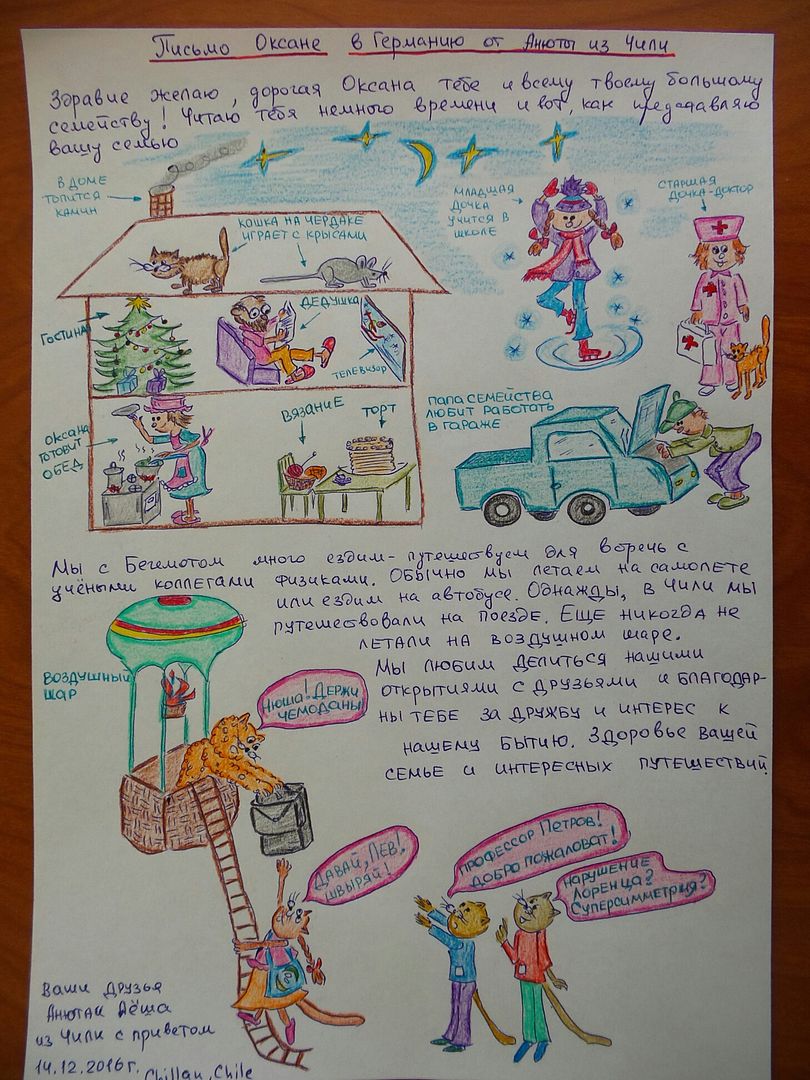 Письмо Оксане в Германию от Анюты из Чили
Здравие желаю, дорогая Оксана тебе и всему твоему большому
семейству! Читаю тебя немного времени и вот, как представляю
вашу семью
В ДОМЕ
ТОПИТСЯ
КАМИН
КОШКА НА ЧЕРДАКЕ
ИГРАЕТ С КРЫСАМИ
МЛАДШАЯ
ДОЧКА
УЧИТСЯ В
ШКОЛЕ
СТАРШАЯ
ДОЧКА-ДОКТОР
ГОСТИНАЯ
ДЕДУШКА
ТЕЛЕВИЗОР
ОКСАНА
ГОТОВИТ
ОБЕД
ВЯЗАНИЕ
ТОРТ
ПАПА СЕМЕЙСТВА
ЛЮБИТ РАБОТАТЬ
В ГАРАЖЕ
Мы с Бегемотом много ездим-путешествуем для встреч с
учёными коллегами физиками. Обычно мы летаем на самолете
или ездим на автобусе. Однажды, в Чили мы
путешествовали на поезде. Еще никогда не
летали на воздушном шаре.
Мы любим делиться нашими
открытиями с друзьями и благодар-
ны тебе за дружбу и интерес к
нашему бытию. Здоровье вашей
семье и интересных путешествий.
ВОЗДУШНЫЙ
ШАР
Нюша! Держи
чемоданы!
Давай, Лев!
Швыряй!
Профессор Петров!
Добро пожаловат!
Нарушение
Лоренца?
Суперсимметрия?
Ваши друзья
Анютаи Лёша
из Чили с приветом
14.12.2016г.
Chillan, Chile